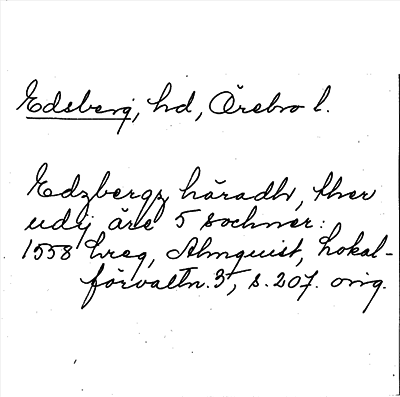 Edsberg, hd, Örebro l.
Edzbergz häradh, ther
udj äre 5 sochner:
1558 hreg, Almquist, Lokal-
förvaltn. 3, s. 207. orig.